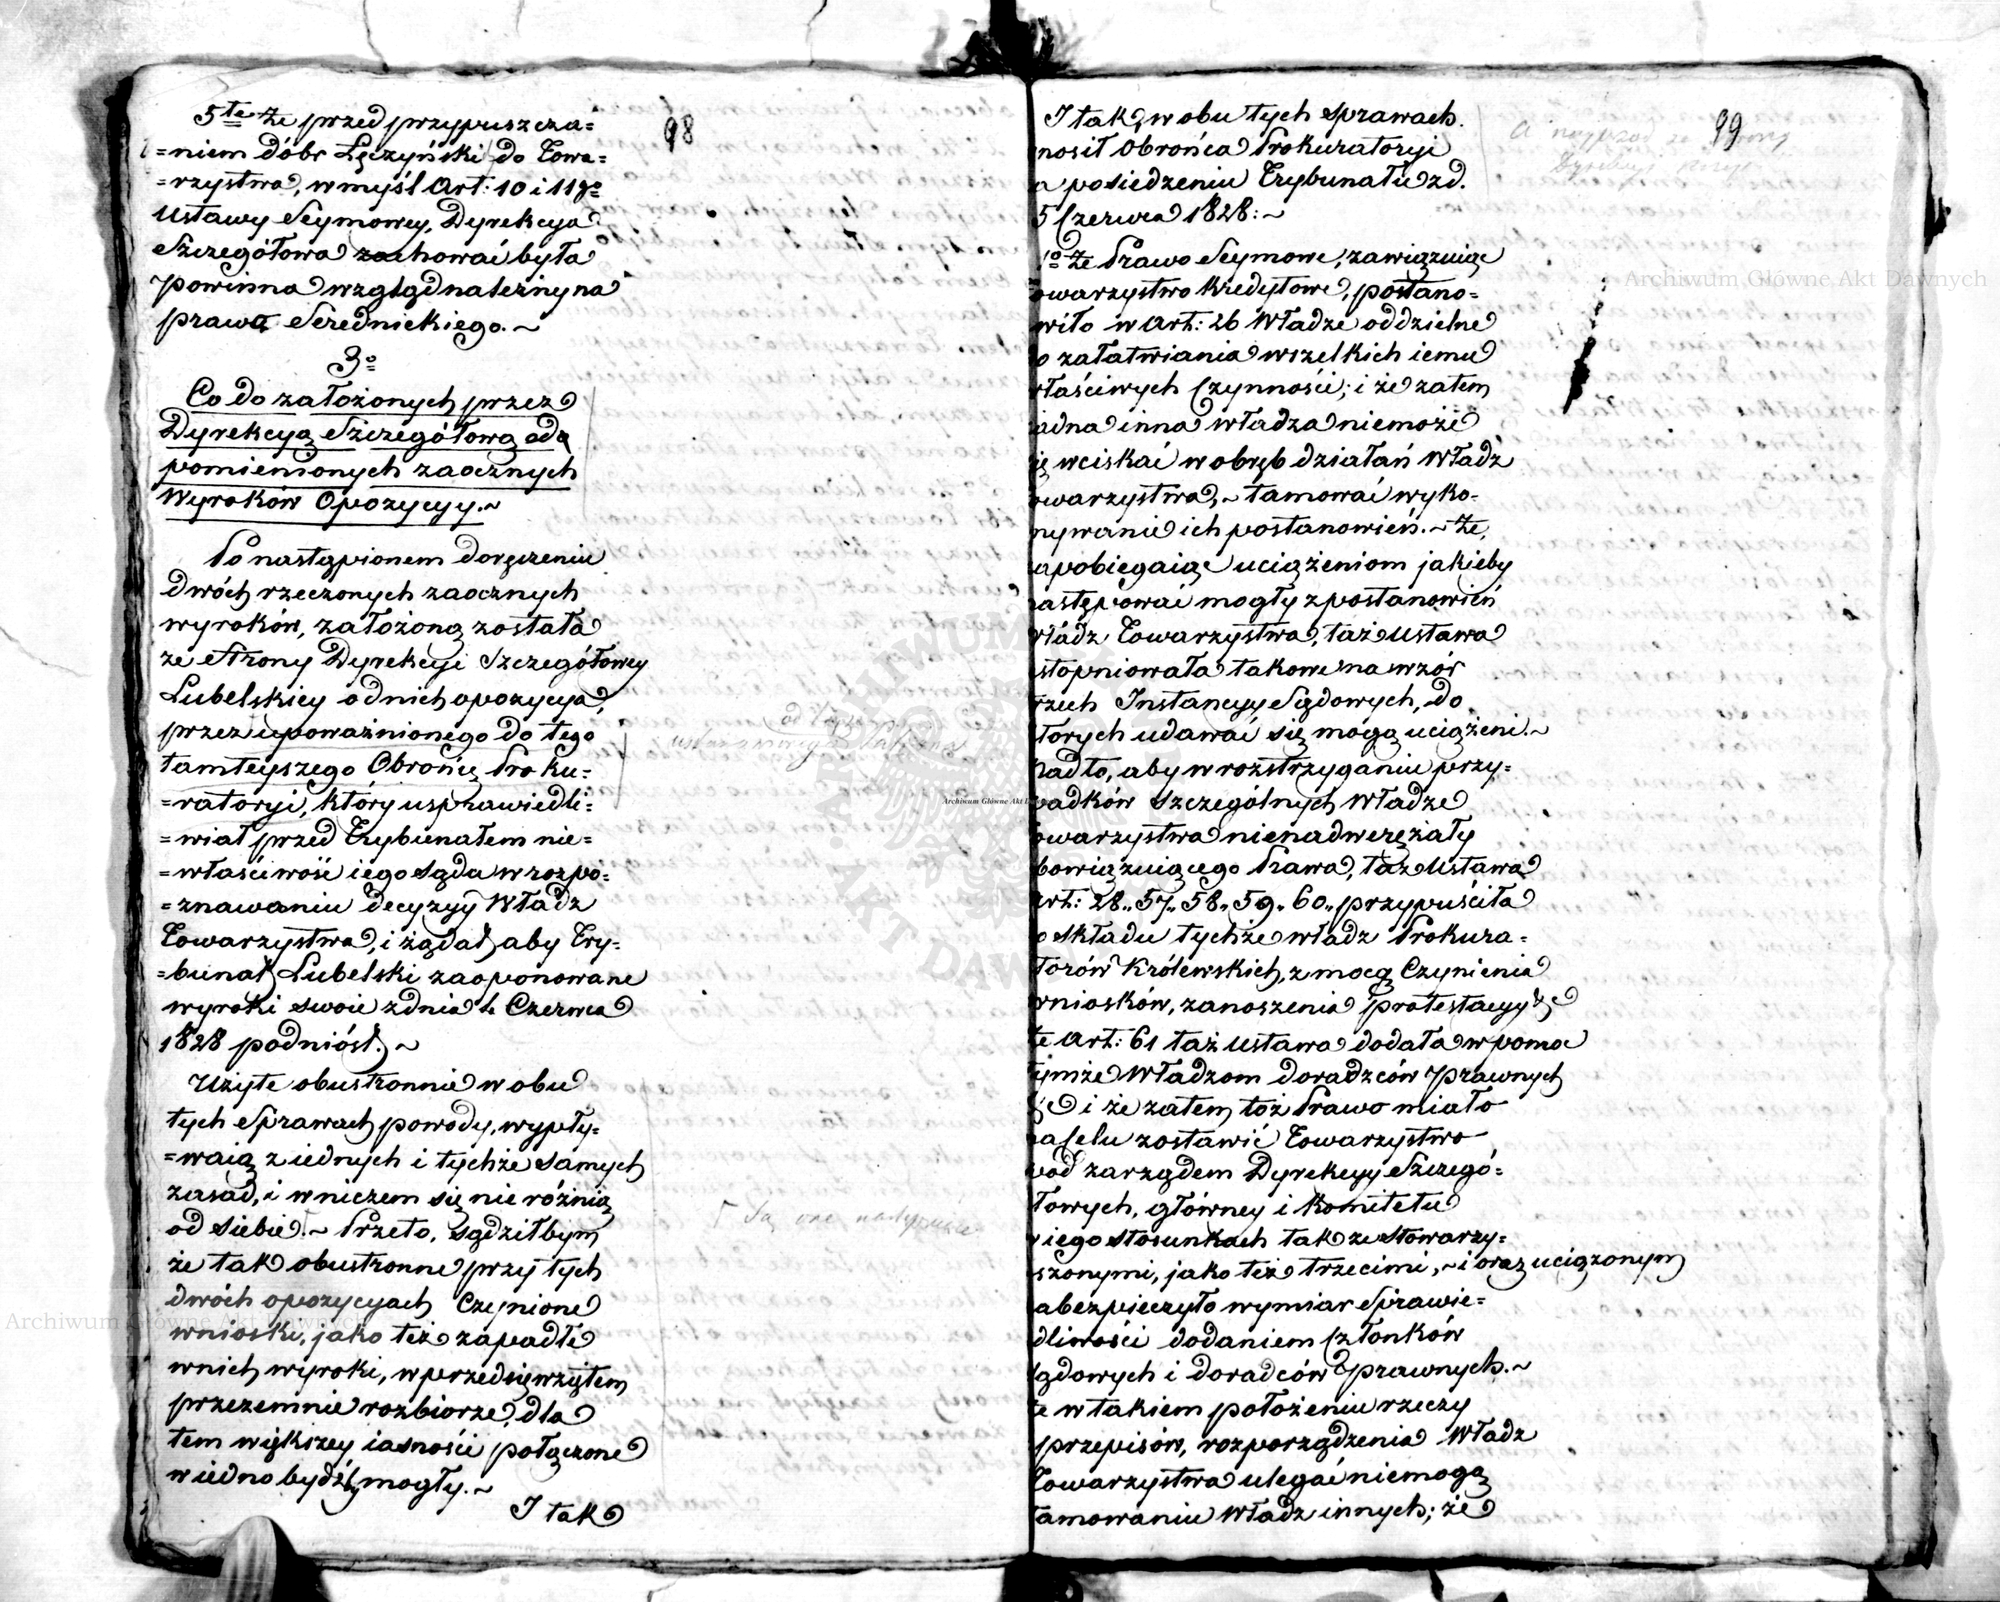 98
5te Że przed przypuszcza=
=niem dóbr Łęczyński do Towa=
=rzystwa, w myśl Art: 10 i 11go
Ustawy Seymowey, Dyrekcya
Szczegółowa zachować była
powinna wzgląd należny na
prawa Serednickiego.~
3o
Co do założonych przez
Dyrekcyą Szczegółową od
pomienionych zaocznych
Wyroków Opozycyy.~
Po nastąpionem doręczeniu
dwóch rzeczonych zaocznych
wyroków, założoną została
ze strony Dyrekcyi Szczegółowey
Lubelskiey od nich opozycya,
przez upoważnionego do tego
tamteyszego Obrońcę Proku=
=ratoryi, który usprawiedli=
=wiał przed Trybunałem nie=
=właściwość iego sądu w rozpo=
=znawaniu decyzyy Władz
Towarzystwa, i żądał, aby Try=
=bunał Lubelski zaoponowane
wyroki swoie z dnia 4 Czerwca
1828 podniósł.~
Użyte obustronnie w obu
tych Sprawach powody, wypły=
=waią z iednych i tychże samych
zasad, i w niczem się nie różnią
od siebie.~ Przeto, sądziłbym
że tak obustronne przy tych
dwóch opozycyach Czynione
wnioski, jako też zapadłe
w nich wyroki, w przedsięwziętem
przezemnie rozbiorze, dla
tem większey iasności połączone
w iedno bydź mogły.~
I tak
Są one następujące
99
A naprzod ze strony
Dyrekcyi
I tak, w obu tych sprawach.
nosił Obrońca Prokuratoryi
a posiedzeniu Trybunału z d.
5 Czerwca 1828:~
1o Że Prawo Seymowe, zawiązuiąc
owarzystwo Kredytowe, postano=
wiło w Art: 26 Władze oddzielne
o załatwiania wszelkich iemu
łaściwych Czynności; i że zatem
adna inna władza niemoże
ię wciskać w obręb działań Władz
owarzystwa,~ tamować wyko=
nywanie ich postanowień.~ Że,
apobiegaiąc uciążeniom jakieby
astępować mogły z postanowień
władz Towarzystwa, taż Ustawa
stopniowała takowe na wzór
rzech Instancyy Sądowych, do
tórych udawać się mogą uciążeni.~
adto, aby w rozstrzyganiu przy=
padków szczególnych Władze
owarzystwa nienadwerężały
bowiązuiącego Prawa, taż Ustawa
rt: 28. 57. 58. 59. 60. przypuściła
o składu tychże władz Prokura=
torów Królewskich, z mocą Czynienia
wniosków, zanoszenia protestacyy &c
że Art: 61 taż Ustawa dodała w pomoc
tymże Władzom doradzców prawnych
i że zatem toż Prawo miało
na Celu zostawić Towarzystwo
pod zarządem Dyrekcyy Szczegó=
łowych, główney i Komitetu
w iego stosunkach tak ze stowarzy=
szonymi, jako też trzecimi,~ i oraz uciążonym
abezpieczyło wymiar Sprawie=
dliwości dodaniem Członków
ądowych i doradców prawnych.~
że w takiem położeniu rzeczy
przepisów, rozporządzenia Władz
Towarzystwa ulegać niemogą
tamowaniu Władz innych; że
Archiwum Główne Akt Dawnych
Archiwum Główne Akt Dawnych
Archiwum Główne Akt Dawnych